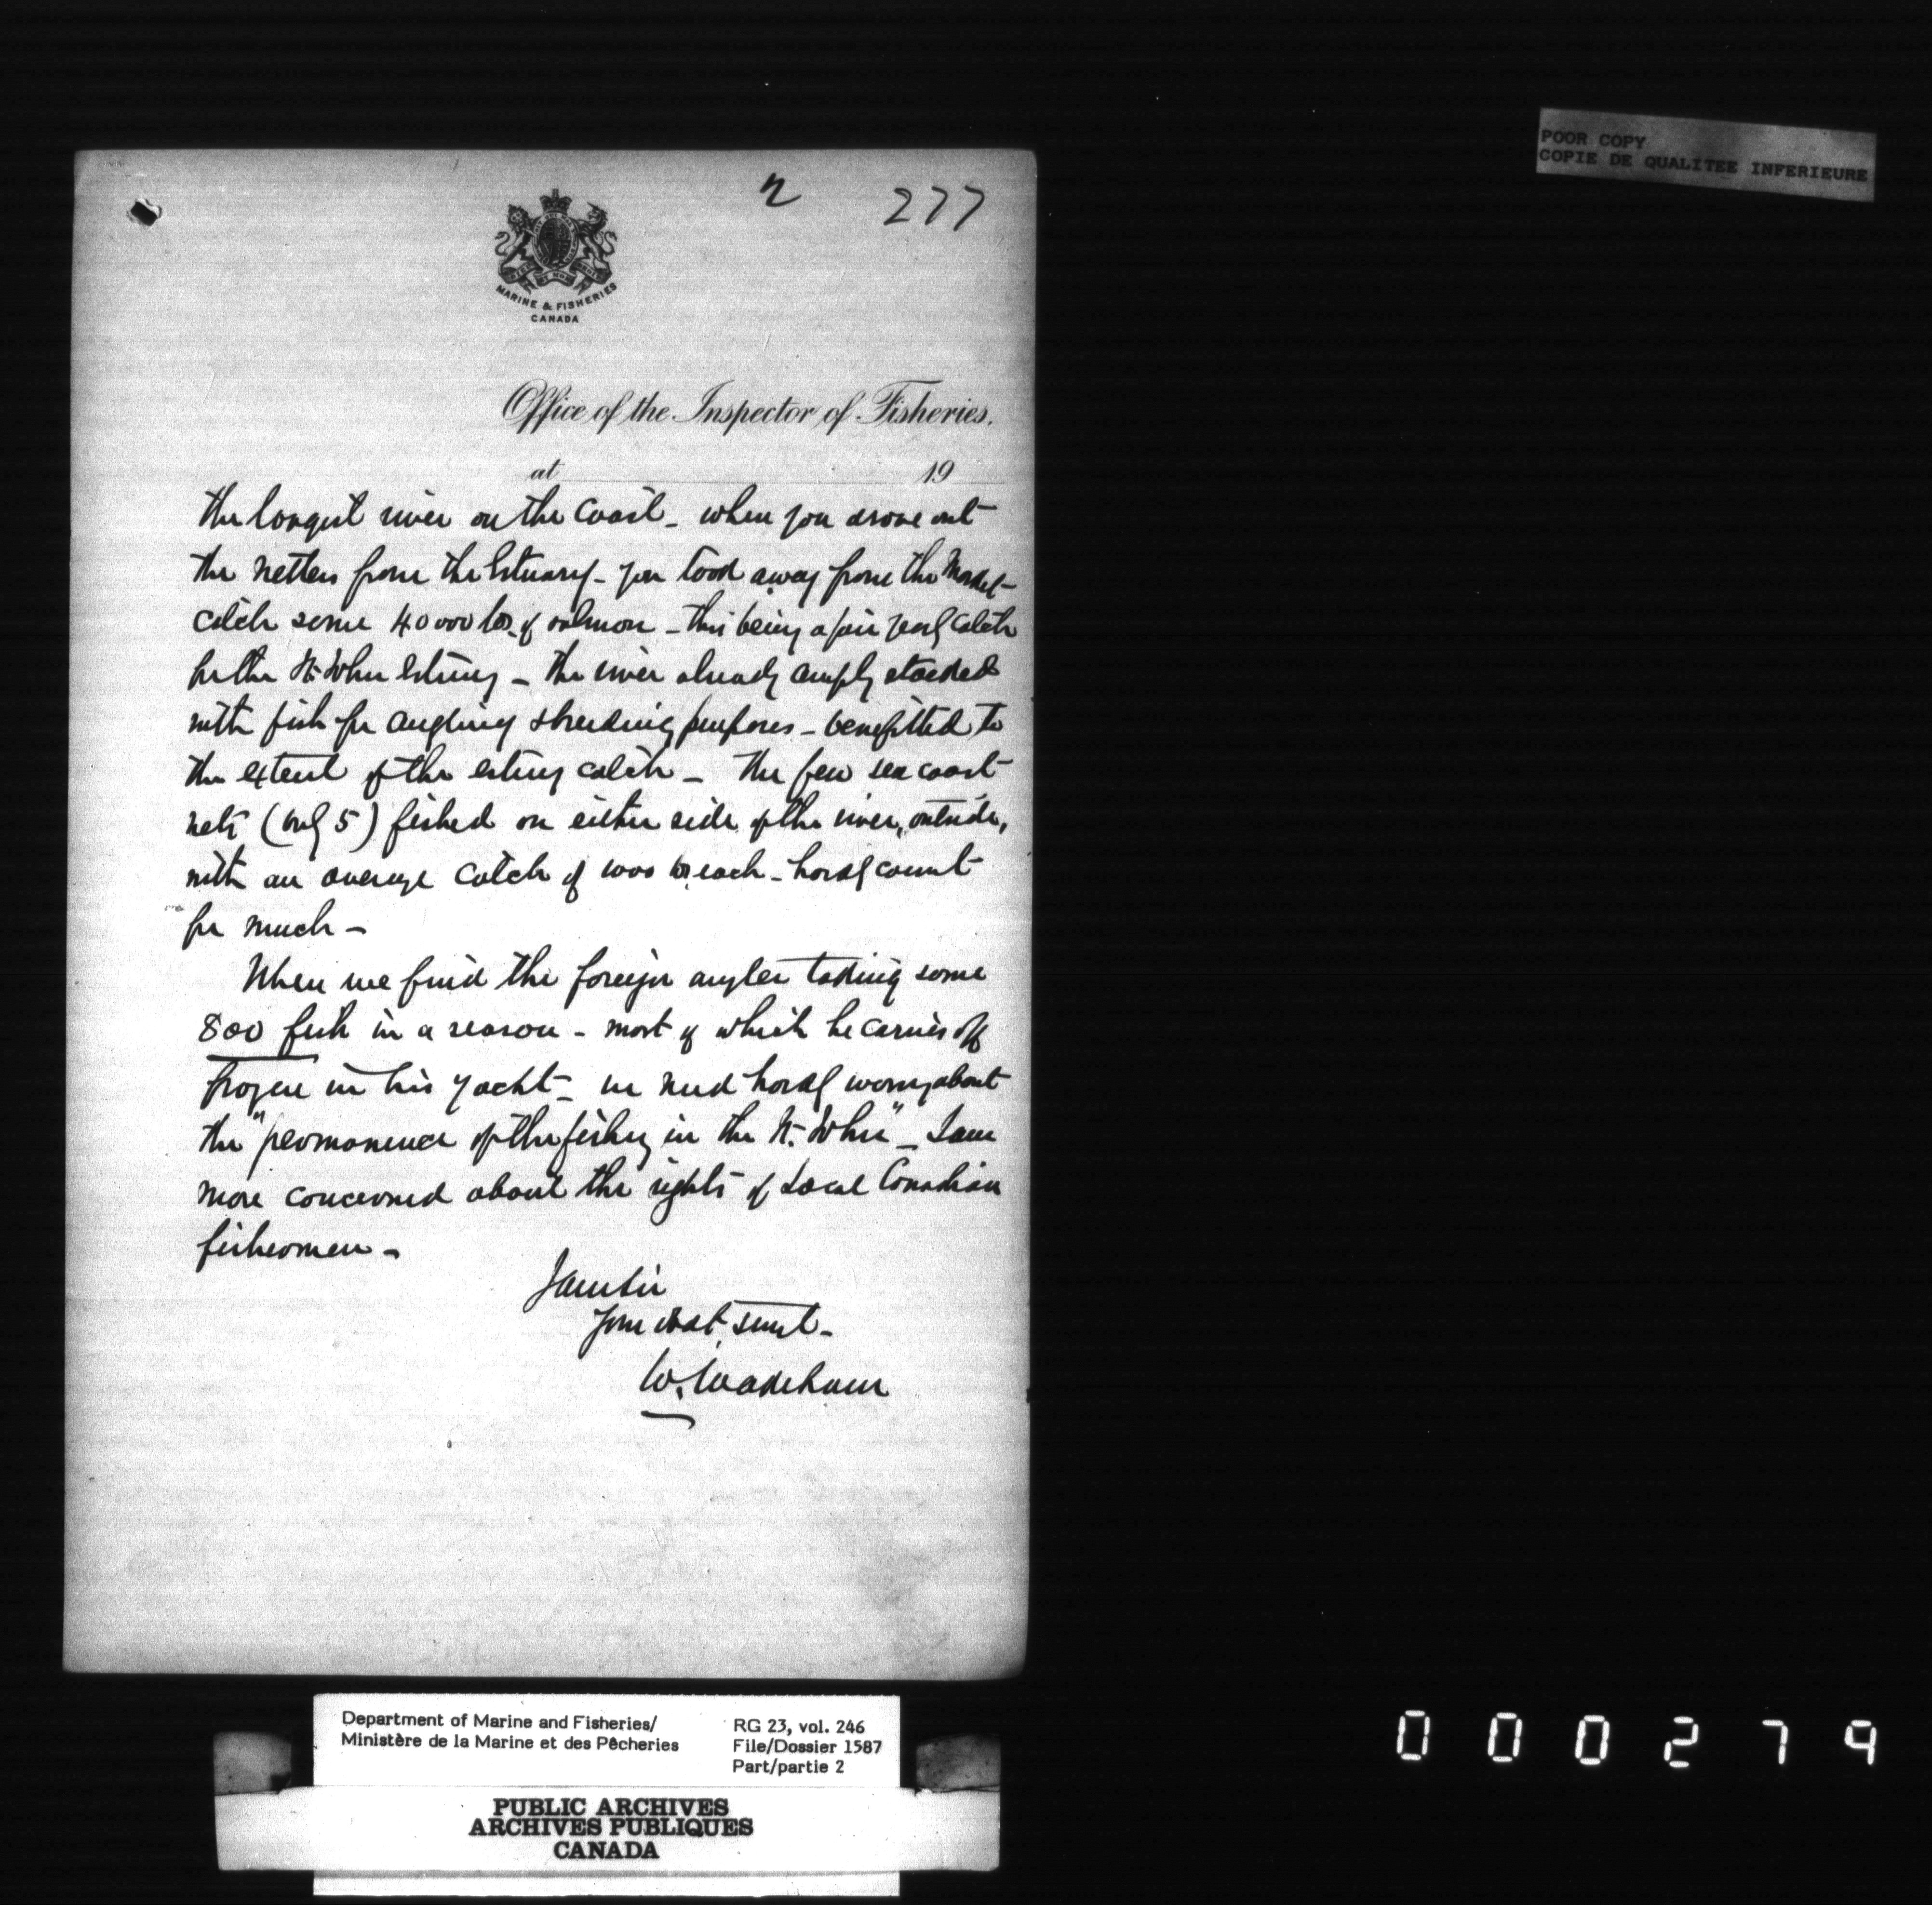 POOR COPY
COPIE DE QUALITEE INFERIEURE
2 277
MARINE & FISHERIES
CANADA
Office of the Inspector of Fisheries.
at 19
the longest river on the Coast - when you drove out
the netters from the Estuary - you took away from the Market
catch some 40000 lbs. of salmon - this being a fair yearly catch
for the St. John Estuary - the river already amply stocked
with fish for angling & breeding purposes - benefitted to
the extent of the estuary catch - The few sea coast
nets (only 5) fished on either side of the river, outside,
with an average catch of 1000 lbs each - hardly count
for much -
When we find the foreign angler taking some
800 fish in a season - most of which he carries off
frozen in his yacht - we need hardly worry about
the "permanence of the fishery in the St. John" - I am
more concerned about the rights of Local Canadian
fishermen -
I am Sir
Your obdt servt -
W. Wakeham
Department of Marine and Fisheries/
Ministère de la Marine et des Pêcheries
RG 23, vol. 246
File/Dossier 1587
Part/partie 2
PUBLIC ARCHIVES
ARCHIVES PUBLIQUES
CANADA
000279